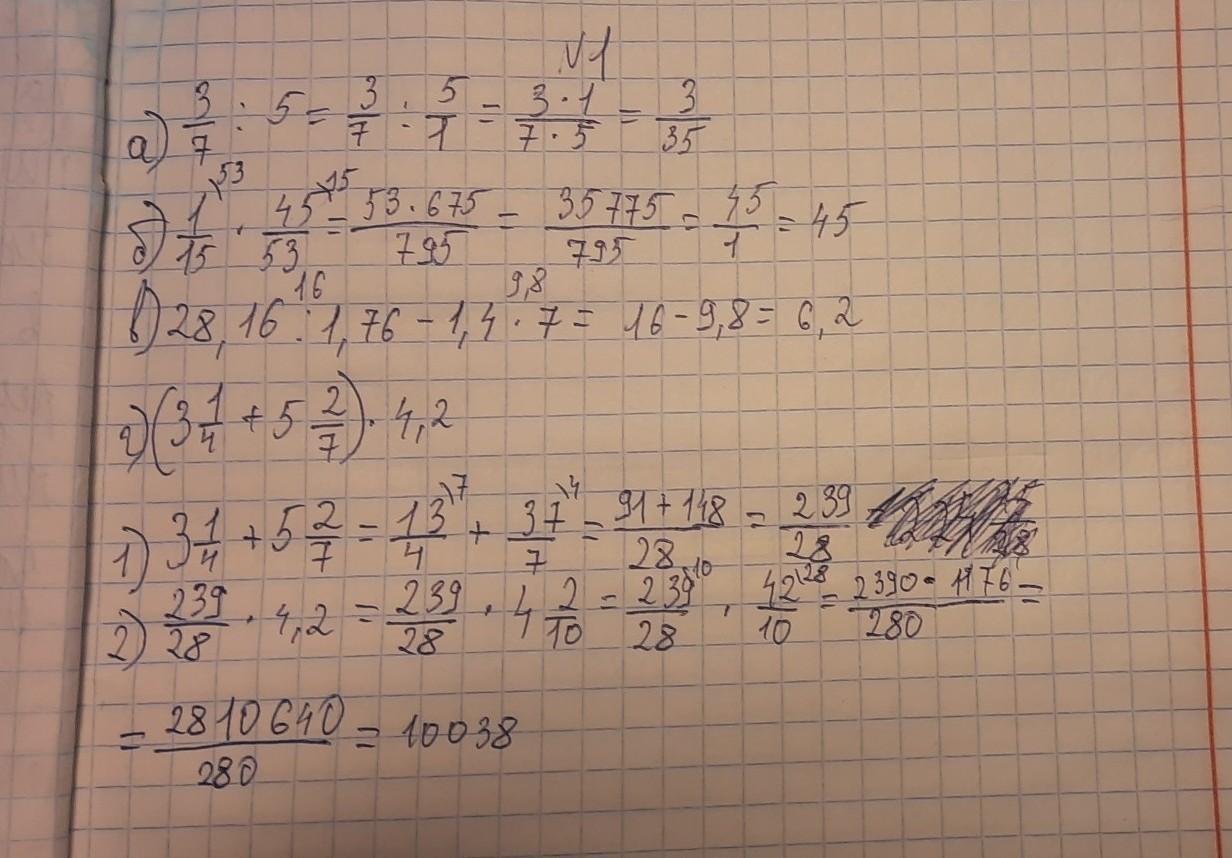 №1
а) 3/7 : 5 = 3/7 : 5/1 = 3·1/7·5 = 3/35
б) 1\53/15 · 45\15/53 = 53·675/795 = 35775/795 = 45/1 = 45
в) 28,16 :16 1,76 - 1,4 ·9,8 7 = 16 - 9,8 = 6,2
г) (3 1/4 + 5 2/7) · 4,2
1) 3 1/4 + 5 2/7 = 13\7/4 + 37\4/7 = 91+148/28 = 239/28
2) 239/28 · 4,2 = 239/28 · 4 2/10 = 239\10/28 · 42\28/10 = 2390·1176/280 =
= 2810640/280 = 10038